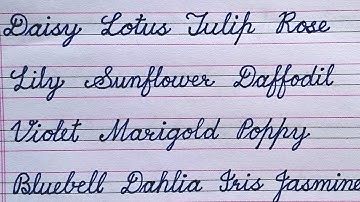 Daisy Lotus Tulip Rose
Lily Sunflower Daffodil
Violet Marigold Poppy
Bluebell Dahlia Iris Jasmine